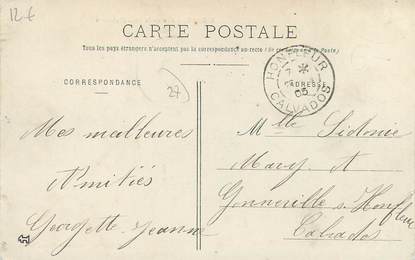 12 €
CARTE POSTALE
Tous les pays étrangers n'acceptent pas la correspondance au recto (Se renseigner à la Poste)
CORRESPONDANCE
ADRESSE
HONFLEUR
05
CALVADOS
27
Mes meilleures
Amitiés
Georgette-Jeanne
Mlle Sidonie
Mary
Gonneville s. Honfleur
Calvados